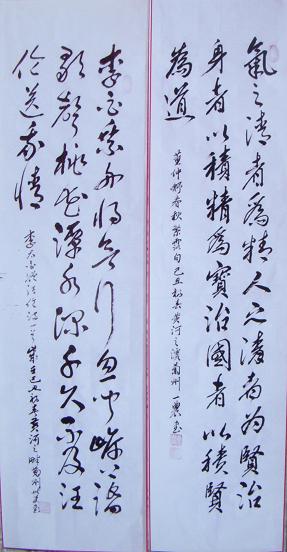 氣之清者為精人之清者为賢治
身者以積精為寶治國者以積賢
為道
董仲舒春秋繁露句己丑秋黄河之濱蘭州一農書
李白乘舟將欲行忽聞岸上踏
歌聲桃花潭水深千尺不及汪
倫送我情
李太白贈汪倫詩一首歲在己丑秋黄河之畔蘭州